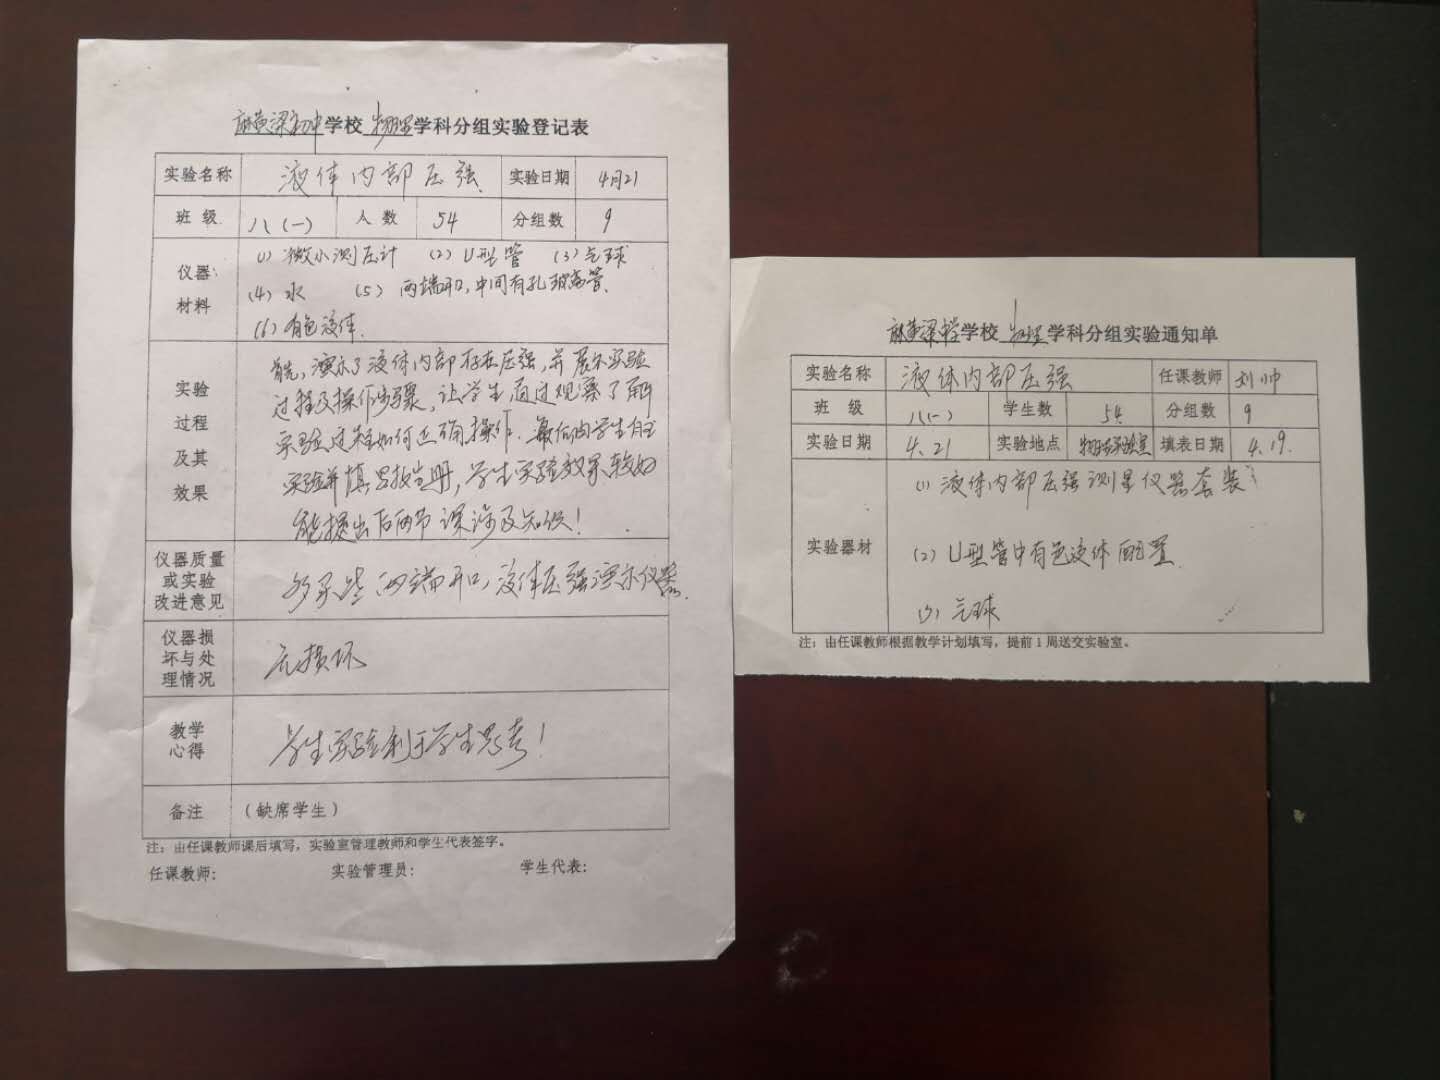 麻黄梁初中学校 物理学科分组实验登记表
实验名称 液体内部压强 实验日期 4月21
班 级 八(一) 人 数 54 分组数 9
仪器
材料
(1) 微小测压计 (2) U型管 (3) 气球
(4) 水 (5) 两端开口,中间有孔玻璃管.
(6) 有色液体.
实验
过程
及其
效果
首先,演示了液体内部存在压强,并展示实验
过程及操作步骤,让学生通过观察了解
实验过程如何正确操作.最后由学生自主
实验并填写报告册,学生实验效果较好
能提出后两节课涉及知识!
仪器质量
或实验
改进意见
多采些两端开口,液体压强演示仪器.
仪器损
坏与处
理情况
无损坏
教学
心得
学生实验利于学生思考!
备注 (缺席学生)
注:由任课教师课后填写,实验室管理教师和学生代表签字。
任课教师: 实验管理员: 学生代表:
麻黄梁中学校 物理学科分组实验通知单
实验名称 液体内部压强 任课教师 刘帅
班 级 八(一) 学生数 54 分组数 9
实验日期 4.21 实验地点 物理实验室 填表日期 4.19.
实验器材
(1) 液体内部压强测量仪器套装
(2) U型管中有色液体配置
(3) 气球
注:由任课教师根据教学计划填写,提前1周送交实验室。